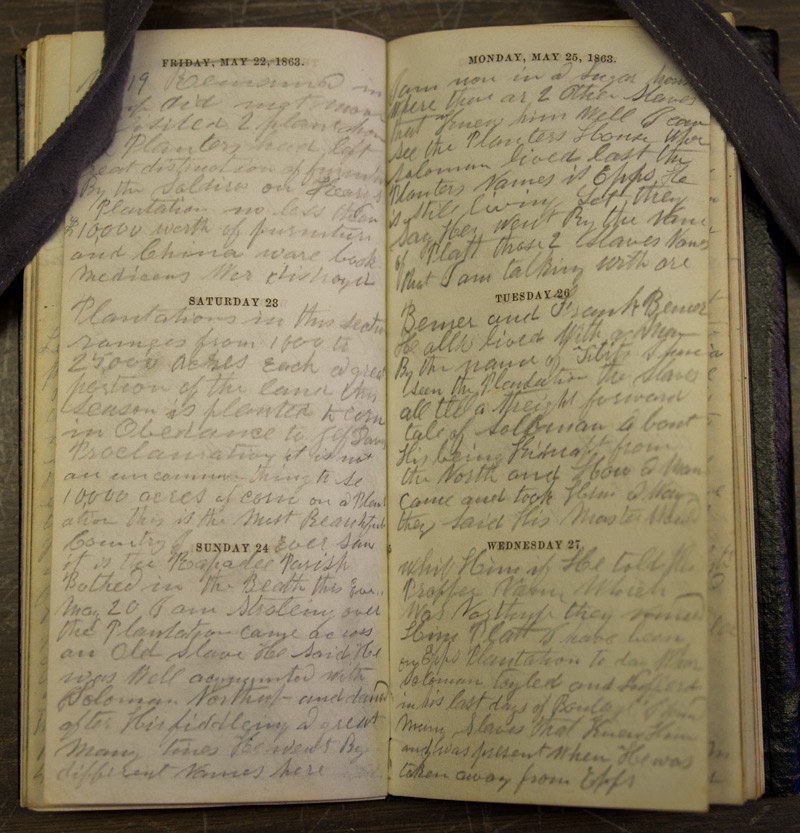 FRIDAY, MAY 22, 1863.
19 Remained in
did not move
visited 2 plantation
Planters had left
great distruction of furniture
By the Soldiers on
Plantation no less then
$10,000 worth of furniture
and China ware book
Medicens Wer distroyd
SATURDAY 23
Plantations in this section
ranges from 1000 to
25,000 acres Each a great
portion of the land this
Season is planted to corn
in Obedance to Jef Davis
Proclamation it is not
an uncommon thing to se
10000 acres of corn on a Plant
ation this is the Most Beautiful
Country I Ever Saw
SUNDAY 24
it is the Rapadee Parish
Bathed in the this Eve
May 20 I am Stroleing over
the Plantation came across
an Old Slave He Said He
was Well acquainted with
Soloman Northup and danced
after His fiddleing a great
Many times He went By
different Names here
MONDAY, MAY 25, 1863.
I am now in a Sugar house
where there ar 2 Other Slaves
that Knew him Well I can
see the Planters House Wher
Soloman lived last the
Planters Names is Epps He
is Still living Yet they
Say He went By the Name
of Platt those 2 Slaves Names
that I am talking with are
TUESDAY 26
and Frank
He allso lived With a Man
By the name of
I seen the Plantation the Slaves
all tell a Streight forward
tale of Soloman about
His being Kidnapt from
the North and How a Man
came and took Him a Way
they said His Master Would
WEDNESDAY 27
whip Him if He told His
Propper Name Which
Was Northup they
Him Platt I have been
on Epps Plantation to day Wher
Soloman toyled and Suffered
in his last days of Bondage
Many Slaves that Knew Him
and was present When He was
taken away from Epps